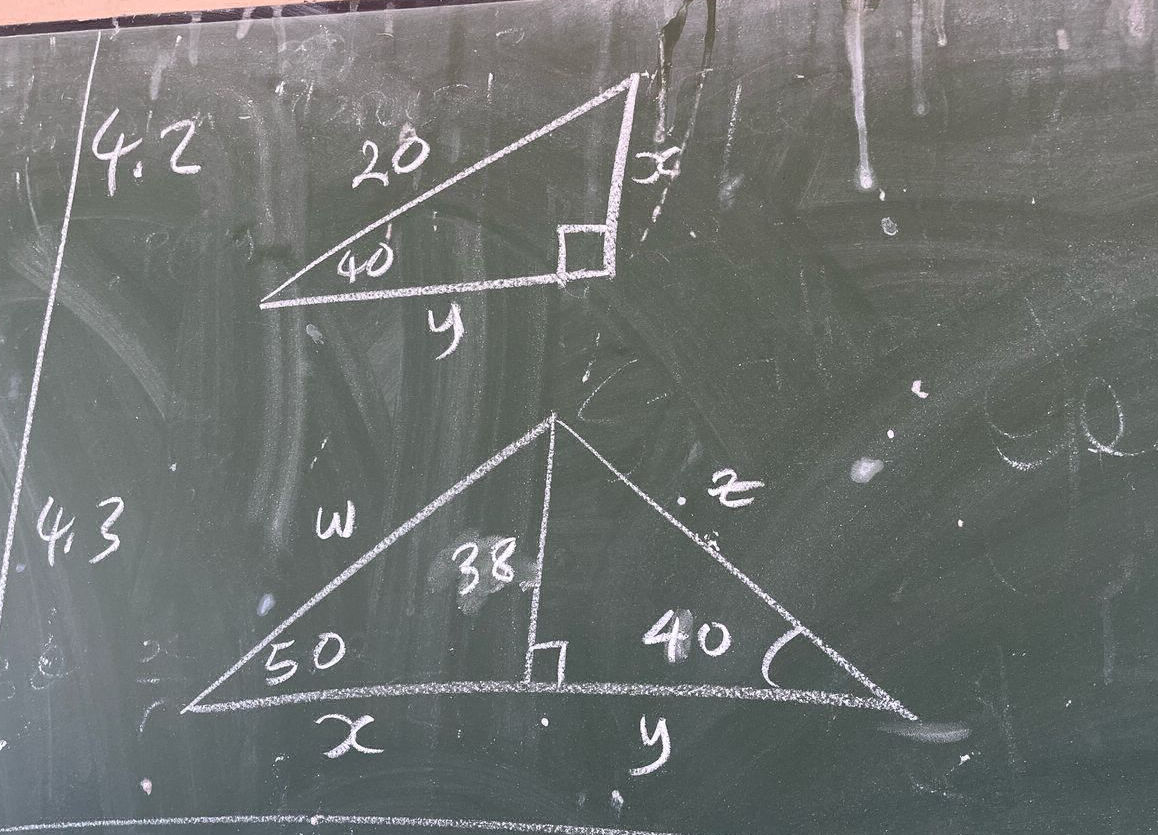 4.2
20
x
40
y
4.3
w
z
38
50
40
x
y